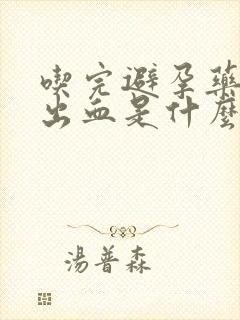 喫完避孕藥
出血是什麼
湯普森